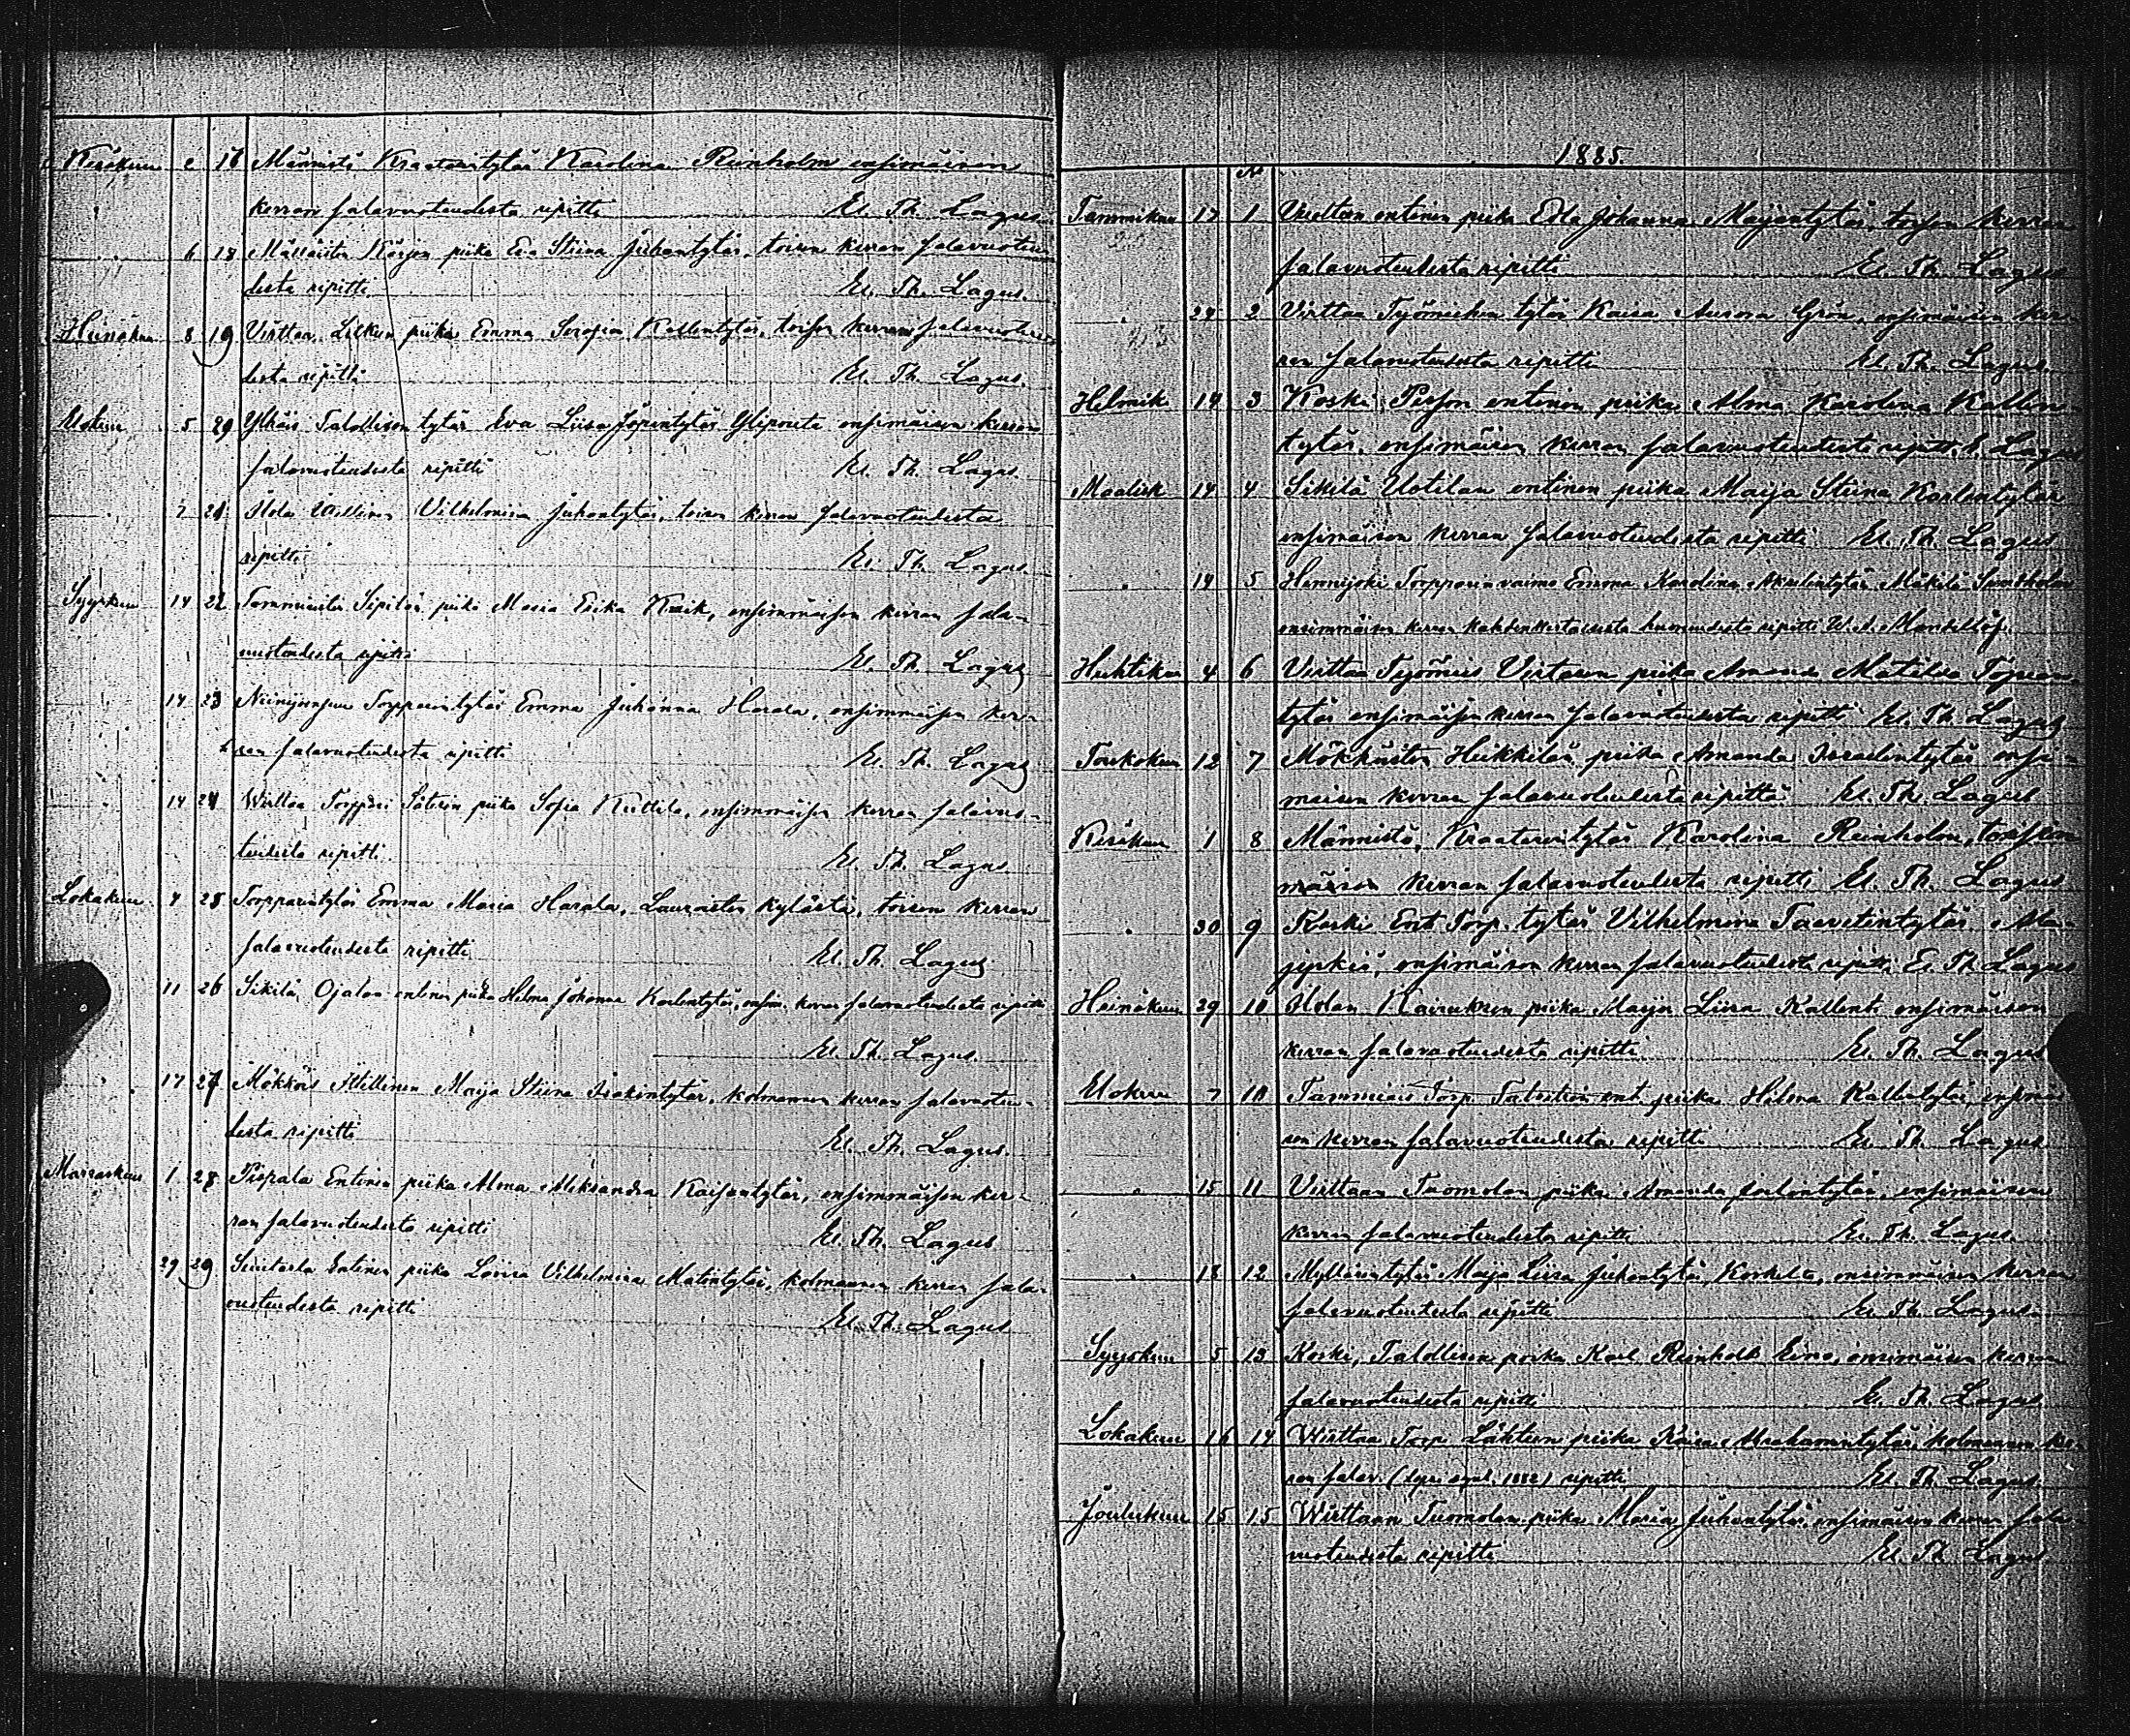 Kesäkuu 2 17 Männistö Kraatarintytär Karolina Reinholm ensimäisen
kerran salavuoteudesta ripitti El. Th. Lagus.
6 18 Piika Eva Stiina Juhantytär, toisen kerran salavuoteu-
desta ripitti El. Th. Lagus.
Heinäkuu 8 19 Virttaa piika Emma Serafia Kallentytär, toisen kerran salavuoteu-
desta ripitti El. Th. Lagus.
Elokuu 5 20 Yttäis Talollisen tytär Eva Liisa Ylipouta ensimäisen kerran
salavuoteudesta ripitti El. Th. Lagus.
21 Vilhelmina Juhantytär, toisen kerran salavuoteudesta
ripitti El. Th. Lagus
Syyskuu 14 22 Tammiaisten Sipilän piika Maria Erika Kraik, ensimmäisen kerran sala-
vuoteudesta ripitti El. Th. Lagus
14 23 Niinijoensuu Torpparintytär Emma Juhanna Harala, ensimmäisen ker-
ran salavuoteudesta ripitti El. Th. Lagus
14 24 Wirttaa Torppari piika Sofia Kuttila, ensimmäisen kerran salavuo-
teudesta ripitti El. Th. Lagus
Lokakuu 4 25 Torpparintytär Emma Maria Harala, kylästä, toisen kerran
salavuoteudesta ripitti El. Th. Lagus
11 26 Sikilä, Ojalan entinen piika Helma Johanna Kaalentytär, ensim. kerran salavuoteudesta ripitti
El. Th. Lagus.
17 27 Mökkäs Itellinen Maija Stiina Isakintytär, kolmannen kerran salavuoteu-
desta ripitti El. Th. Lagus.
Marraskuu 1 28 Pispala Entinen piika Alma Aleksandra Kaisantytär, ensimmäisen ker-
ran salavuoteudesta ripitti El. Th. Lagus
29 29 Suutarla Entinen piika Lovisa Vilhelmina Matintytär, kolmannen kerran sala-
vuoteudesta ripitti El. Th. Lagus
1885.
No
Tammikuu 17 1 Virttaan entinen piika Edla Johanna Maijantytär, toisen kerran
salavuoteudesta ripitti El. Th. Lagus
24 2 Virttaa Työmiehen tytär Kaisa Aurora Grön, ensimäisen ker-
ran salavuoteudesta ripitti El. Th. Lagus.
Helmik 14 3 Koski entinen piika Alma Karolina Kallen-
tytär, ensimäisen kerran salavuoteudesta ripitti E. Lagus
Maalisk 14 4 Sikilä Uotilan entinen piika Maija Stiina Kaarlentytär
ensimäisen kerran salavuoteudesta ripitti El. Th. Lagus
14 5 Hennijoki Torpparin vaimo Emma Karolina Mäkilä
ensimmäisen kerran kahdenkertaisesta huoruudesta ripitti W. A.
Huhtikuu 4 6 Virttaa Työmies Virtasen piika Amanda Matilda
tytär ensimäisen kerran salavuoteudesta ripitti El. Th. Lagus
Toukokuu 12 7 Heikkilän piika Amanda Israelintytär ensi-
mäisen kerran salavuoteudesta ripitti El. Th. Lagus
Kesäkuu 1 8 Männistö, Kraatarintytär Karolina Reinholm,
mäisen kerran salavuoteudesta ripitti El. Th. Lagus
30 9 Koski Ent Torp. tytär Vilhelmina Taavetintytär
ensimäisen kerran salavuoteudesta ripitti El. Th. Lagus
Heinäkuu 29 10 piika Maija Liisa Kallent. ensimäisen
kerran salavuoteudesta ripitti. El. Th. Lagus
Elokuu 7 10 Tammiais Torp. ent. piika Hilma Kallentytär, ensimäi-
sen kerran salavuoteudesta ripitti El. Th. Lagus
15 11 Virttaan Tuomolan piika Amanda, ensimäisen
kerran salavuoteudesta ripitti El. Th. Lagus.
18 12 Myllärintytär Maija Liisa Juhantytär Koskela, ensimmäisen kerran
salavuoteudesta ripitti El. Th. Lagus.
Syyskuu 5 13 Koski, Talollisen poika Karl Reinhold Eino, ensimäisen kerran
salavuoteudesta ripitti El. Th. Lagus
Lokakuu 16 14 Wirttaa Torp. Lähteen piika Kaisa Abrahamintytär, kolmannen ker-
ran salav. ripitti El. Th. Lagus.
Joulukuu 15 15 Wirttaan Tuomolan piika Maria Juhantytär, ensimäisen kerran sala-
vuoteudesta ripitti El. Th. Lagus